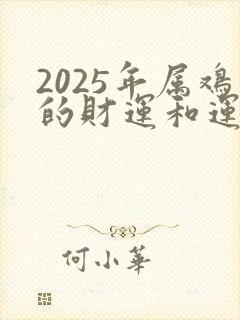 2025年属鸡
的财运和运
何小華